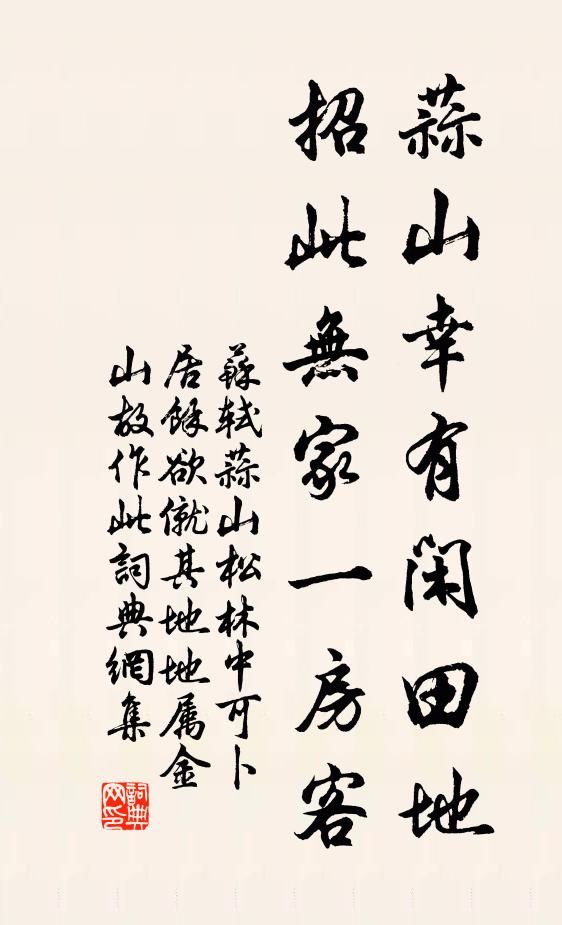 蒜山幸有閑田地
招此無家一房客
蘇軾蒜山松林中可卜
居餘欲僦其地地属金
山故作此詞典網集
詞典网印